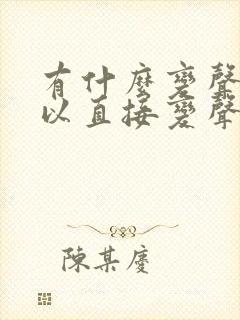 有什麼變聲
以直接變聲
陳某慶